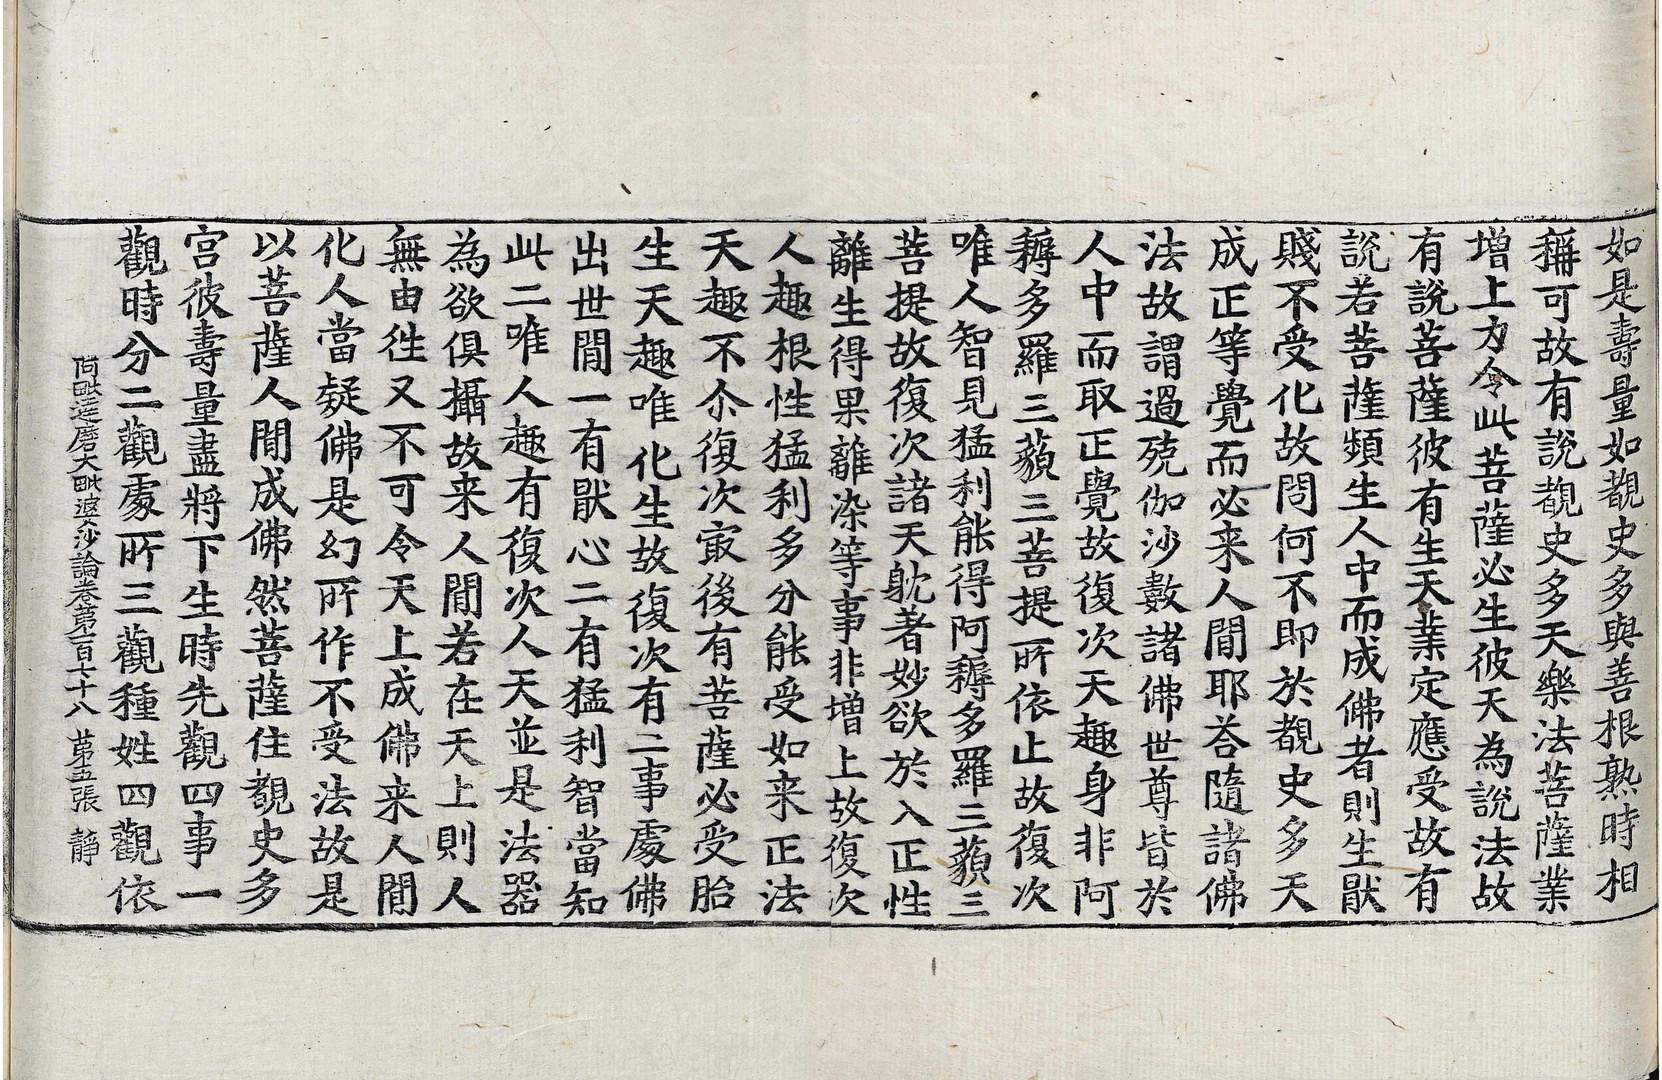 如是壽量如覩史多與善根熟時相
稱可故有說覩史多天樂法菩薩業
增上力令此菩薩必生彼天為說法故
有說菩薩彼有生天業定應受故有
說若菩薩頻生人中而成佛者則生猒
賤不受化故問何不即於覩史多天
成正等覺而必来人間耶荅隨諸佛
法故謂過殑伽沙數諸佛世尊皆於
人中而取正覺故復次天趣身非阿
耨多羅三藐三菩提所依止故復次
唯人智見猛利能得阿耨多羅三藐三
菩提故復次諸天躭著妙欲於入正性
離生得果離染等事非增上故復次
人趣根性猛利多分能受如来正法
天趣不尒復次㝡後有菩薩必受胎
生天趣唯化生故復次有二事處佛
出世間一有猒心二有猛利智當知
此二唯人趣有復次人天並是法器
為欲俱攝故来人間若在天上則人
無由徃又不可令天上成佛来人間
化人當疑佛是幻所作不受法故是
以菩薩人間成佛然菩薩住覩史多
宮彼壽量盡將下生時先觀四事一
觀時分二觀處所三觀種姓四觀依
阿毗達磨大毗婆沙論卷第一百七十八 第五張 靜